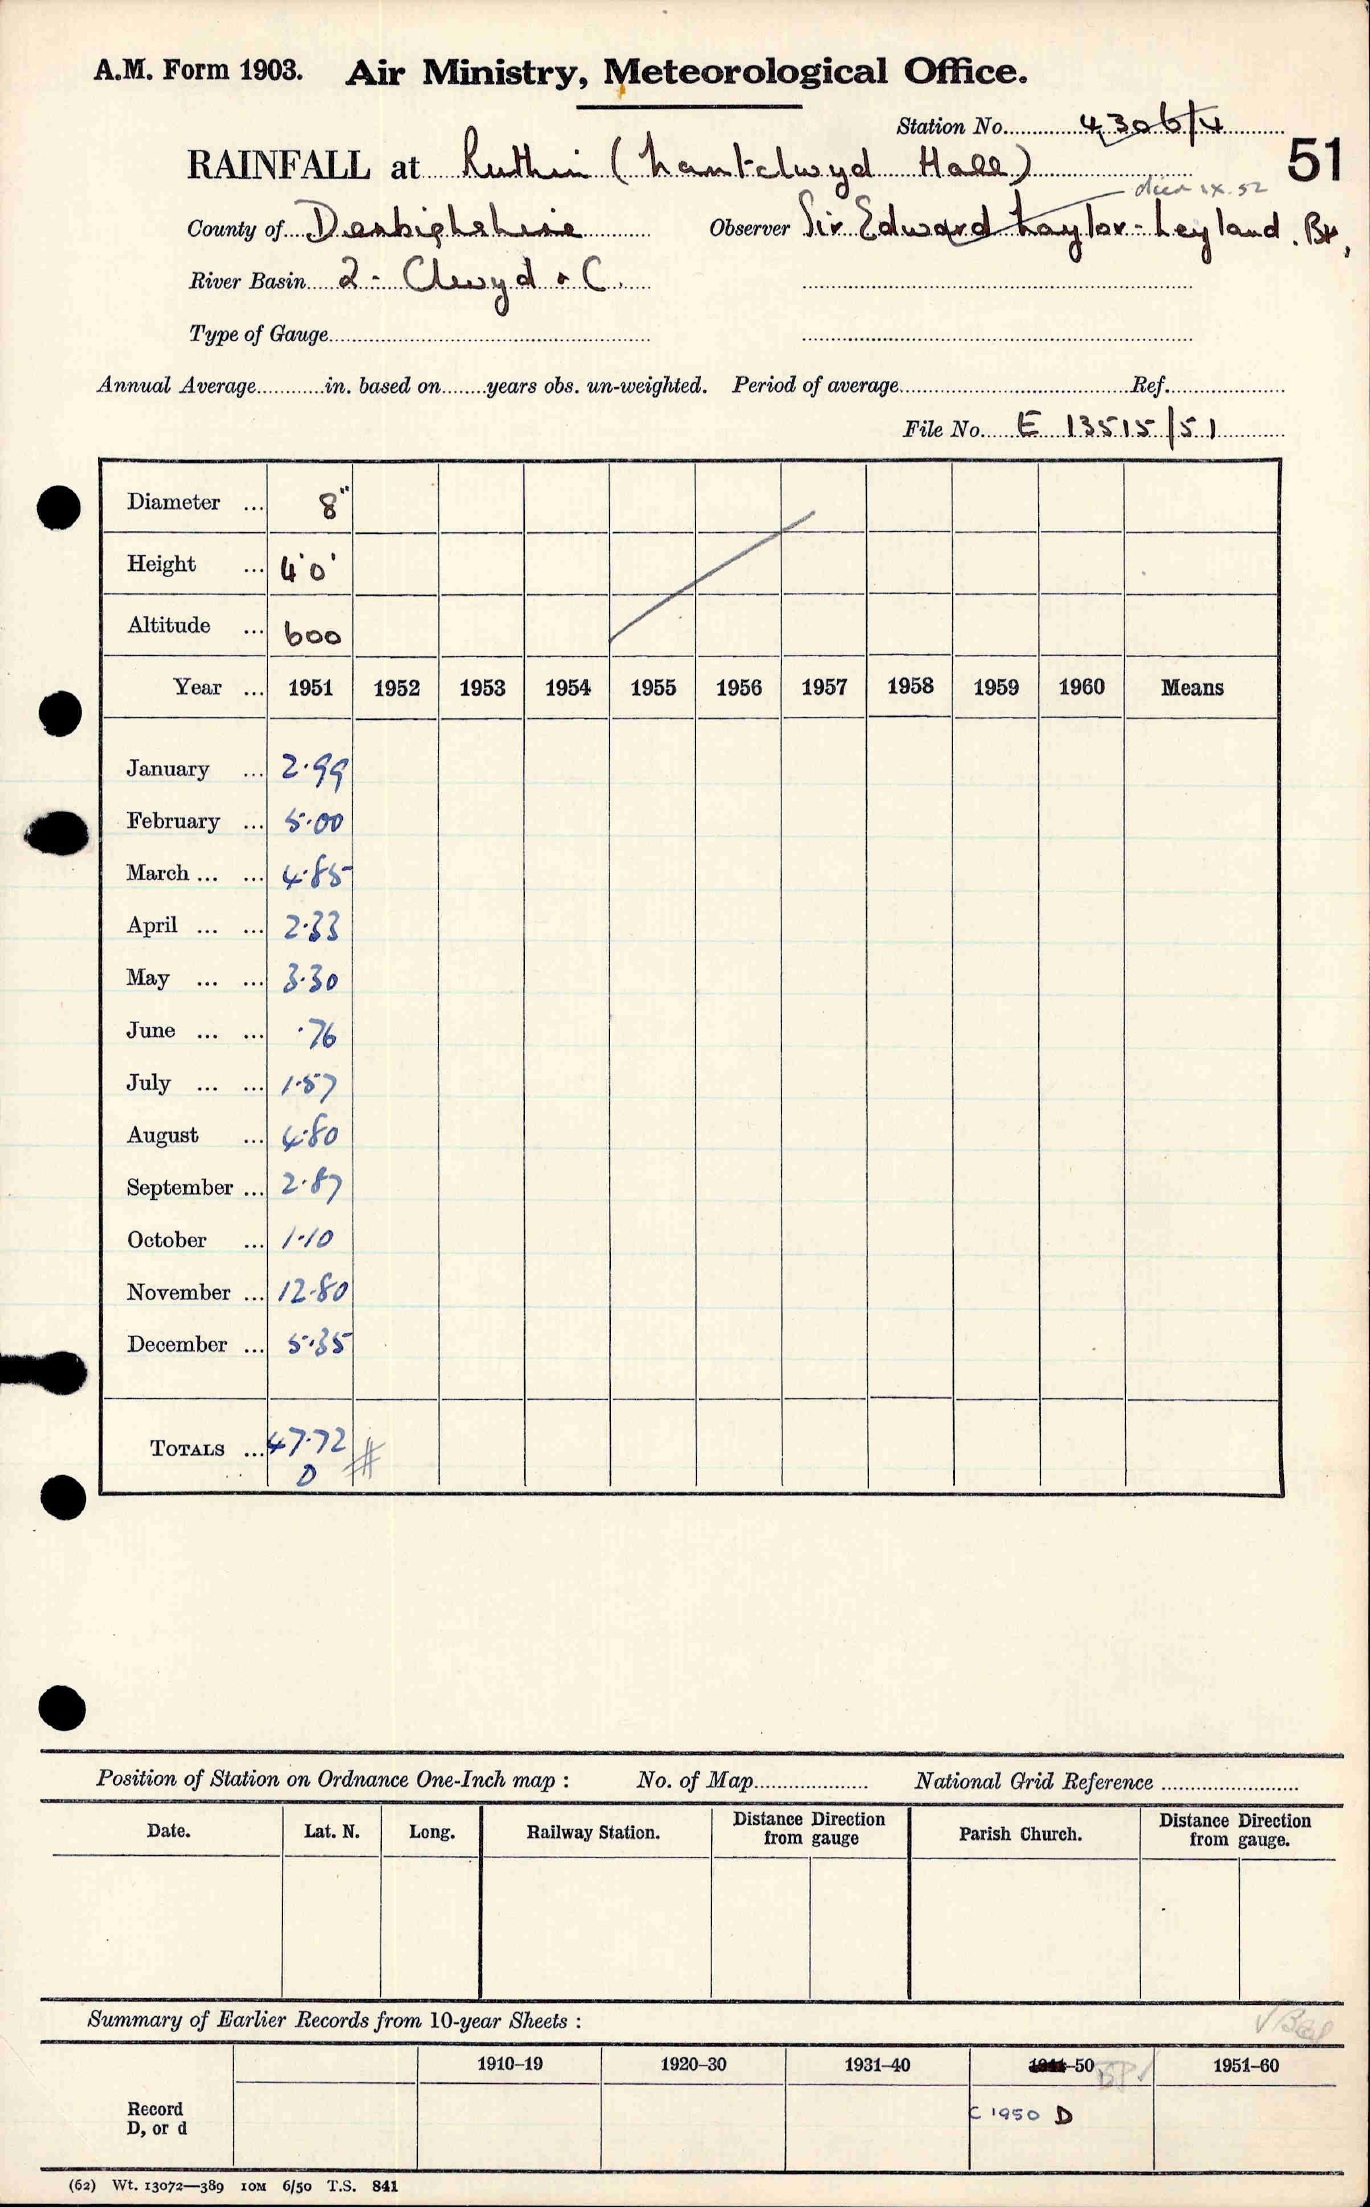 A.M. Form 1903. Air Ministry, Meteorological Office.
Station No. 4306/4
51
RAINFALL at Ruthin (Nantclwyd Hall)
died IX.52
County of Denbighshire Observer Sir Edward Naylor-Leyland. Bt,
River Basin 2 - Clwyd & C.
Type of Gauge
Annual Average in. based on years obs. un-weighted. Period of average Ref.
File No. E 13515/51
Diameter ... 8"
Height ... 4'0'
Altitude ... 600
Year ... 1951 1952 1953 1954 1955 1956 1957 1958 1959 1960 Means
January ... 2.99
February ... 5.00
March ... ... 4.85
April ... ... 2.33
May ... ... 3.30
June ... ... .76
July ... ... 1.57
August ... 4.80
September ... 2.87
October ... 1.10
November ... 12.80
December ... 5.35
TOTALS ... 47.72 #
D
Position of Station on Ordnance One-Inch map : No. of Map National Grid Reference
Date. Lat. N. Long. Railway Station. Distance Direction from gauge Parish Church. Distance Direction from gauge.
Summary of Earlier Records from 10-year Sheets :
1910–19 1920–30 1931–40 1941–50 1951–60
Record
D, or d
C 1950 D
(62) Wt. 13072—389 10M 6/50 T.S. 841